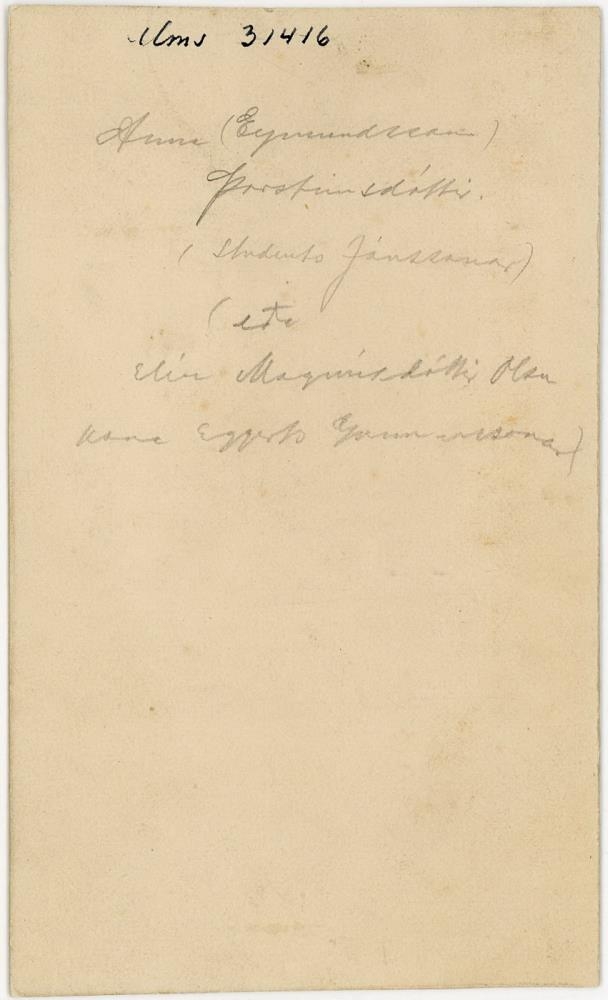 Mms 31416
Anna (Eymundsson)
Þorsteinsdóttir.
(Stúdents Jónssonar)
(eða
Elín Magnúsdóttir Olsen
kona Eggerts Gunnarssonar)